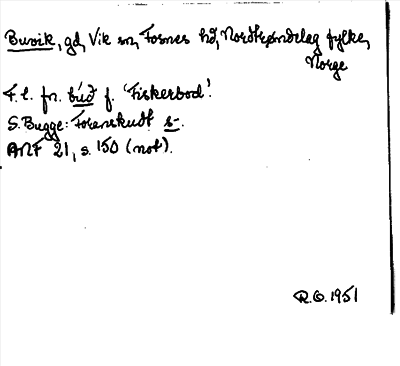 Buvik, gd, Vik sn, Fosnes hd, Nordtrøndelag fylke,
Norge
F.l. fn. búð f. 'Fiskerbod'.
S. Bugge: Forenskudt s-.
ANF 21, s. 150 (not).
R.O. 1951